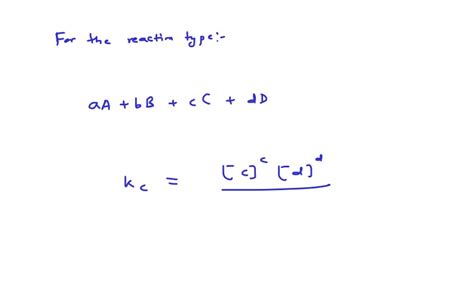 For the reaction type:-
aA + bB + cC + dD
kc = [c]^c [d]^d